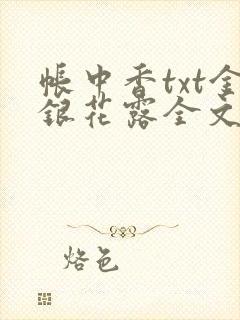 帐中香txt金
银花露全文
烙色